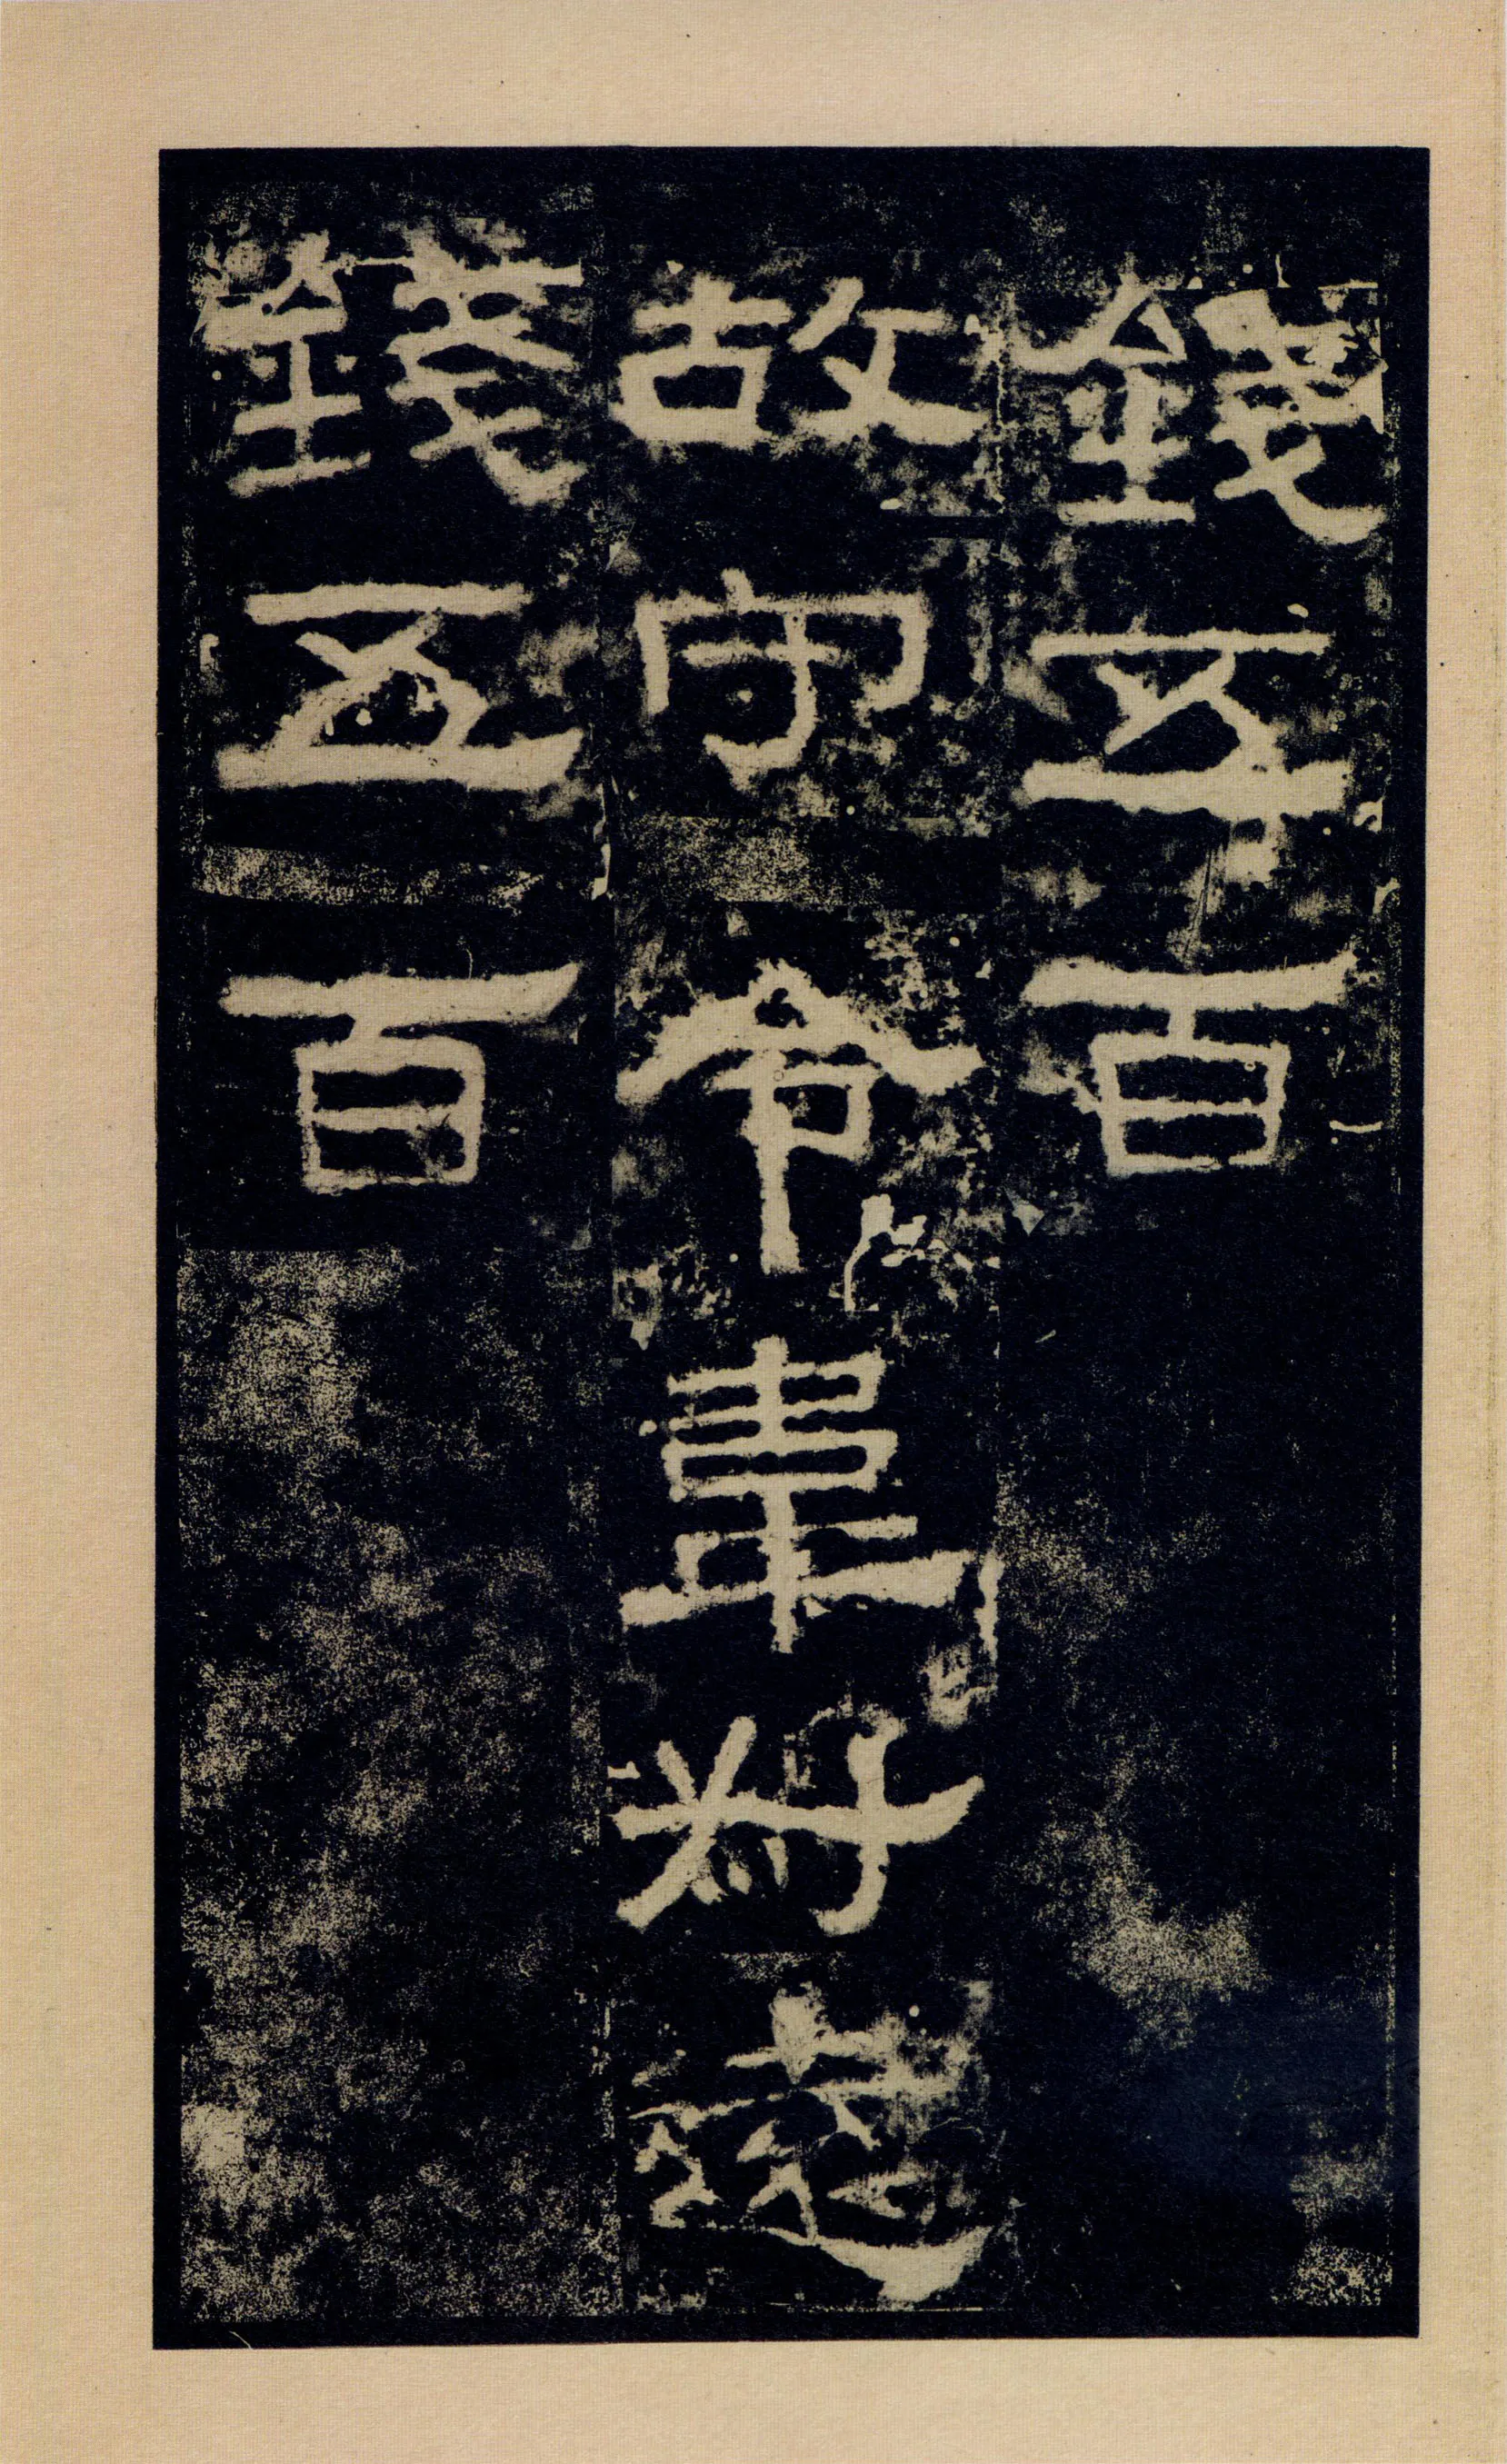 錢五百
故守令韋叔遠
錢五百